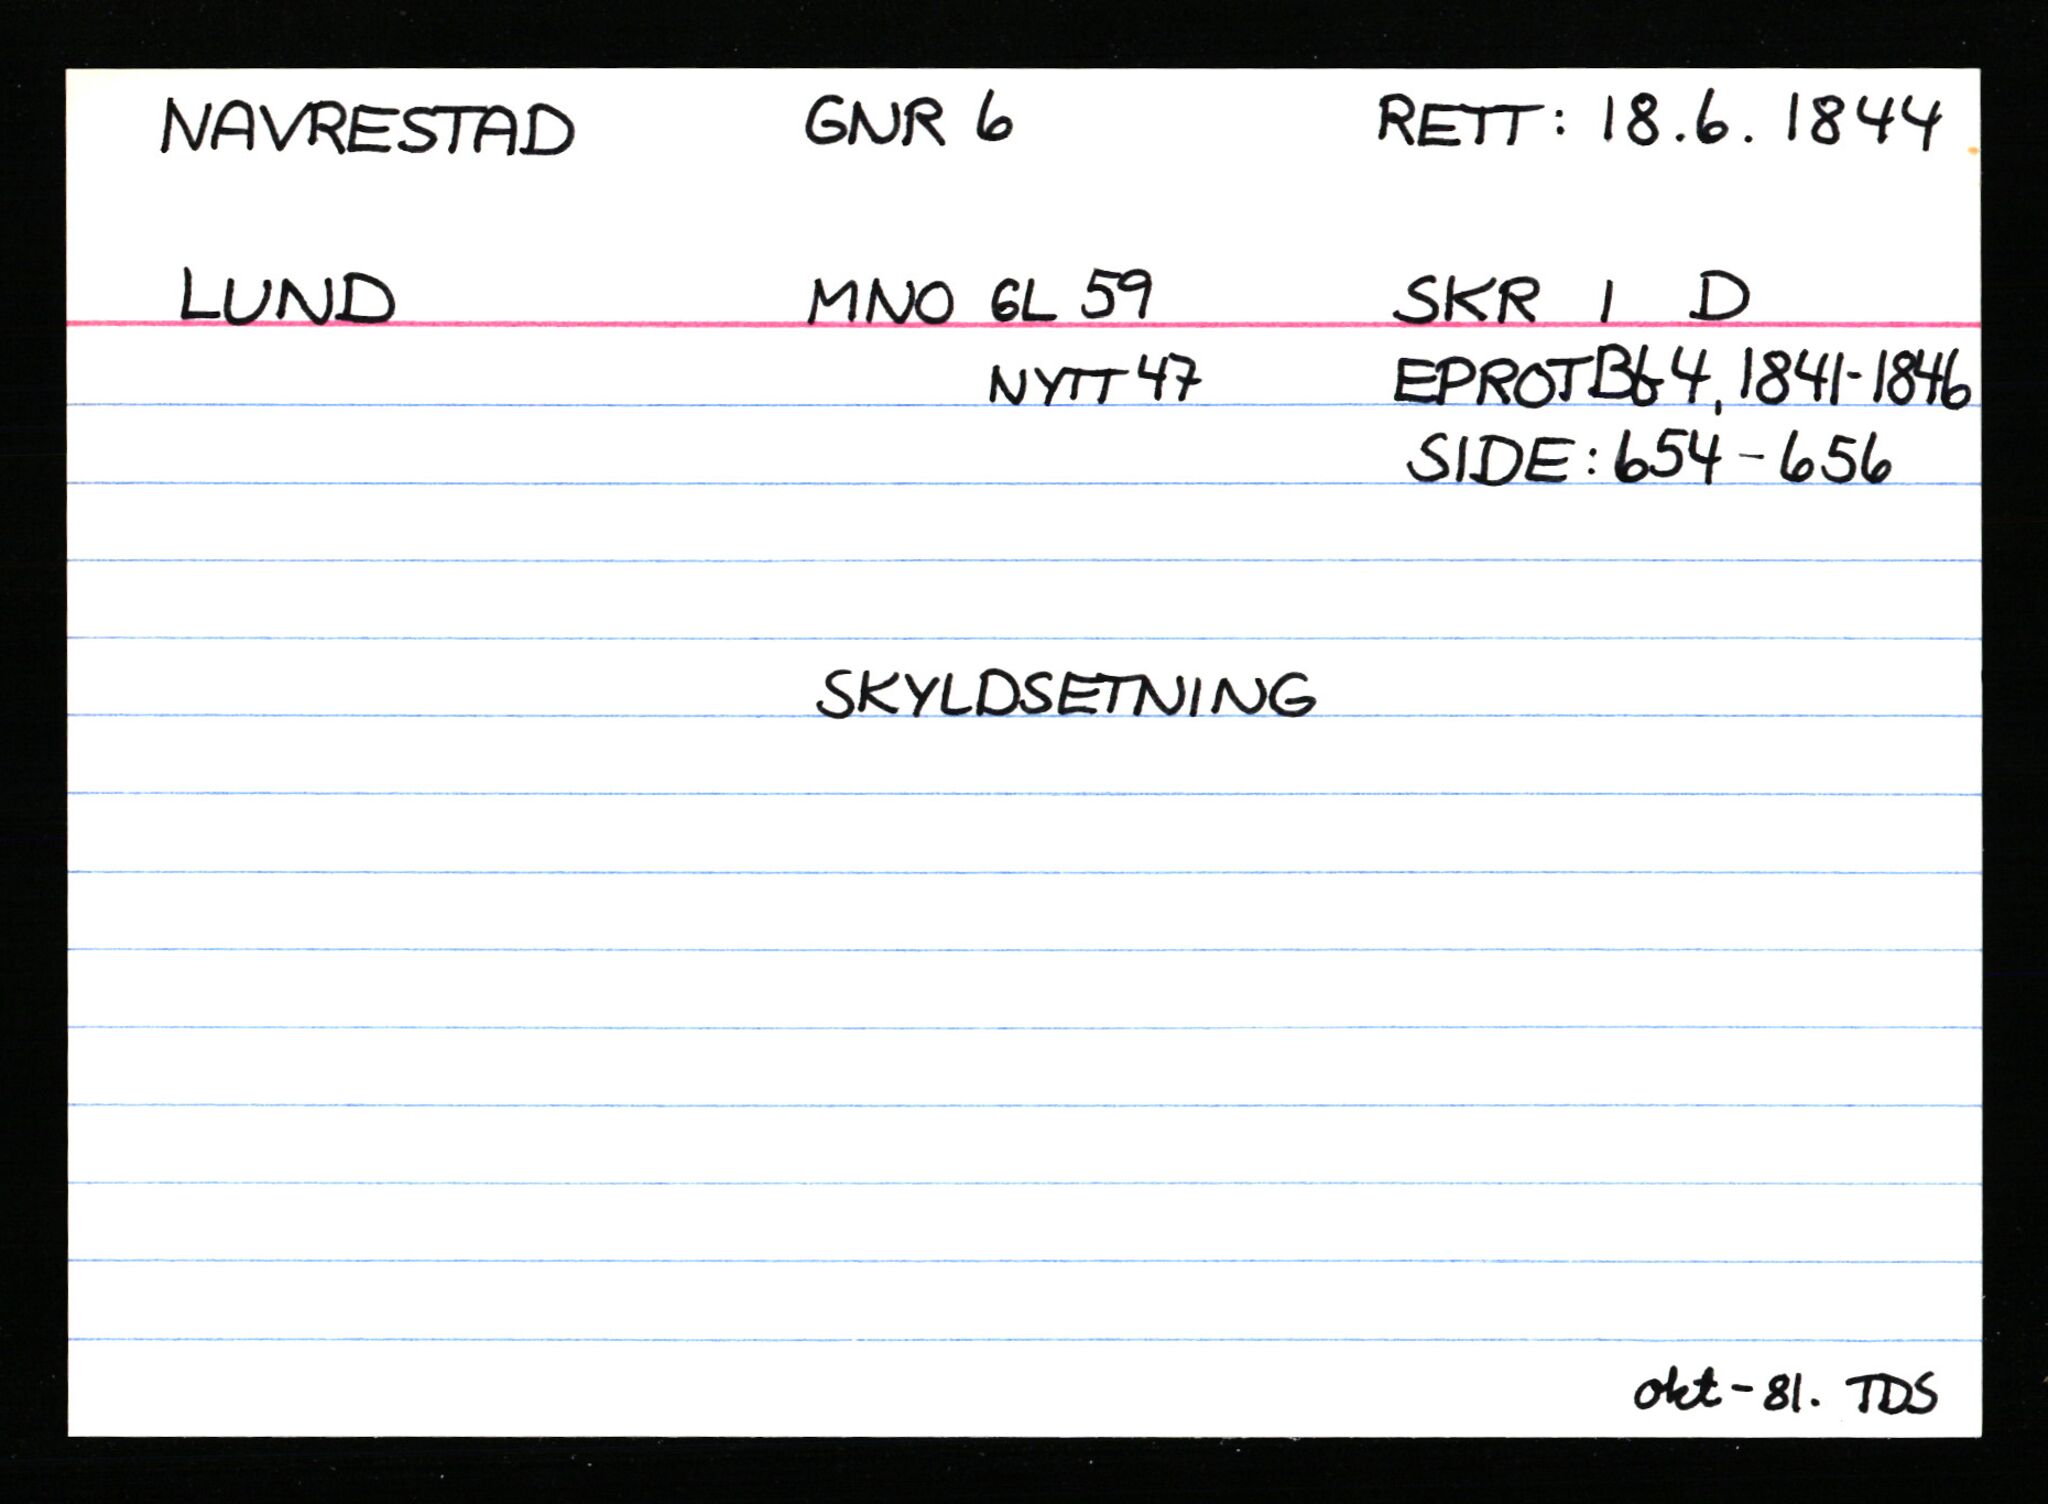 NAVRESTAD GNR 6 RETT: 18.6. 1844
LUND MNO GL 59 SKR 1 D
NYTT 47 EPROTBf 4, 1841-1846
SIDE: 654-656
SKYLDSETNING
okt-81. TDS